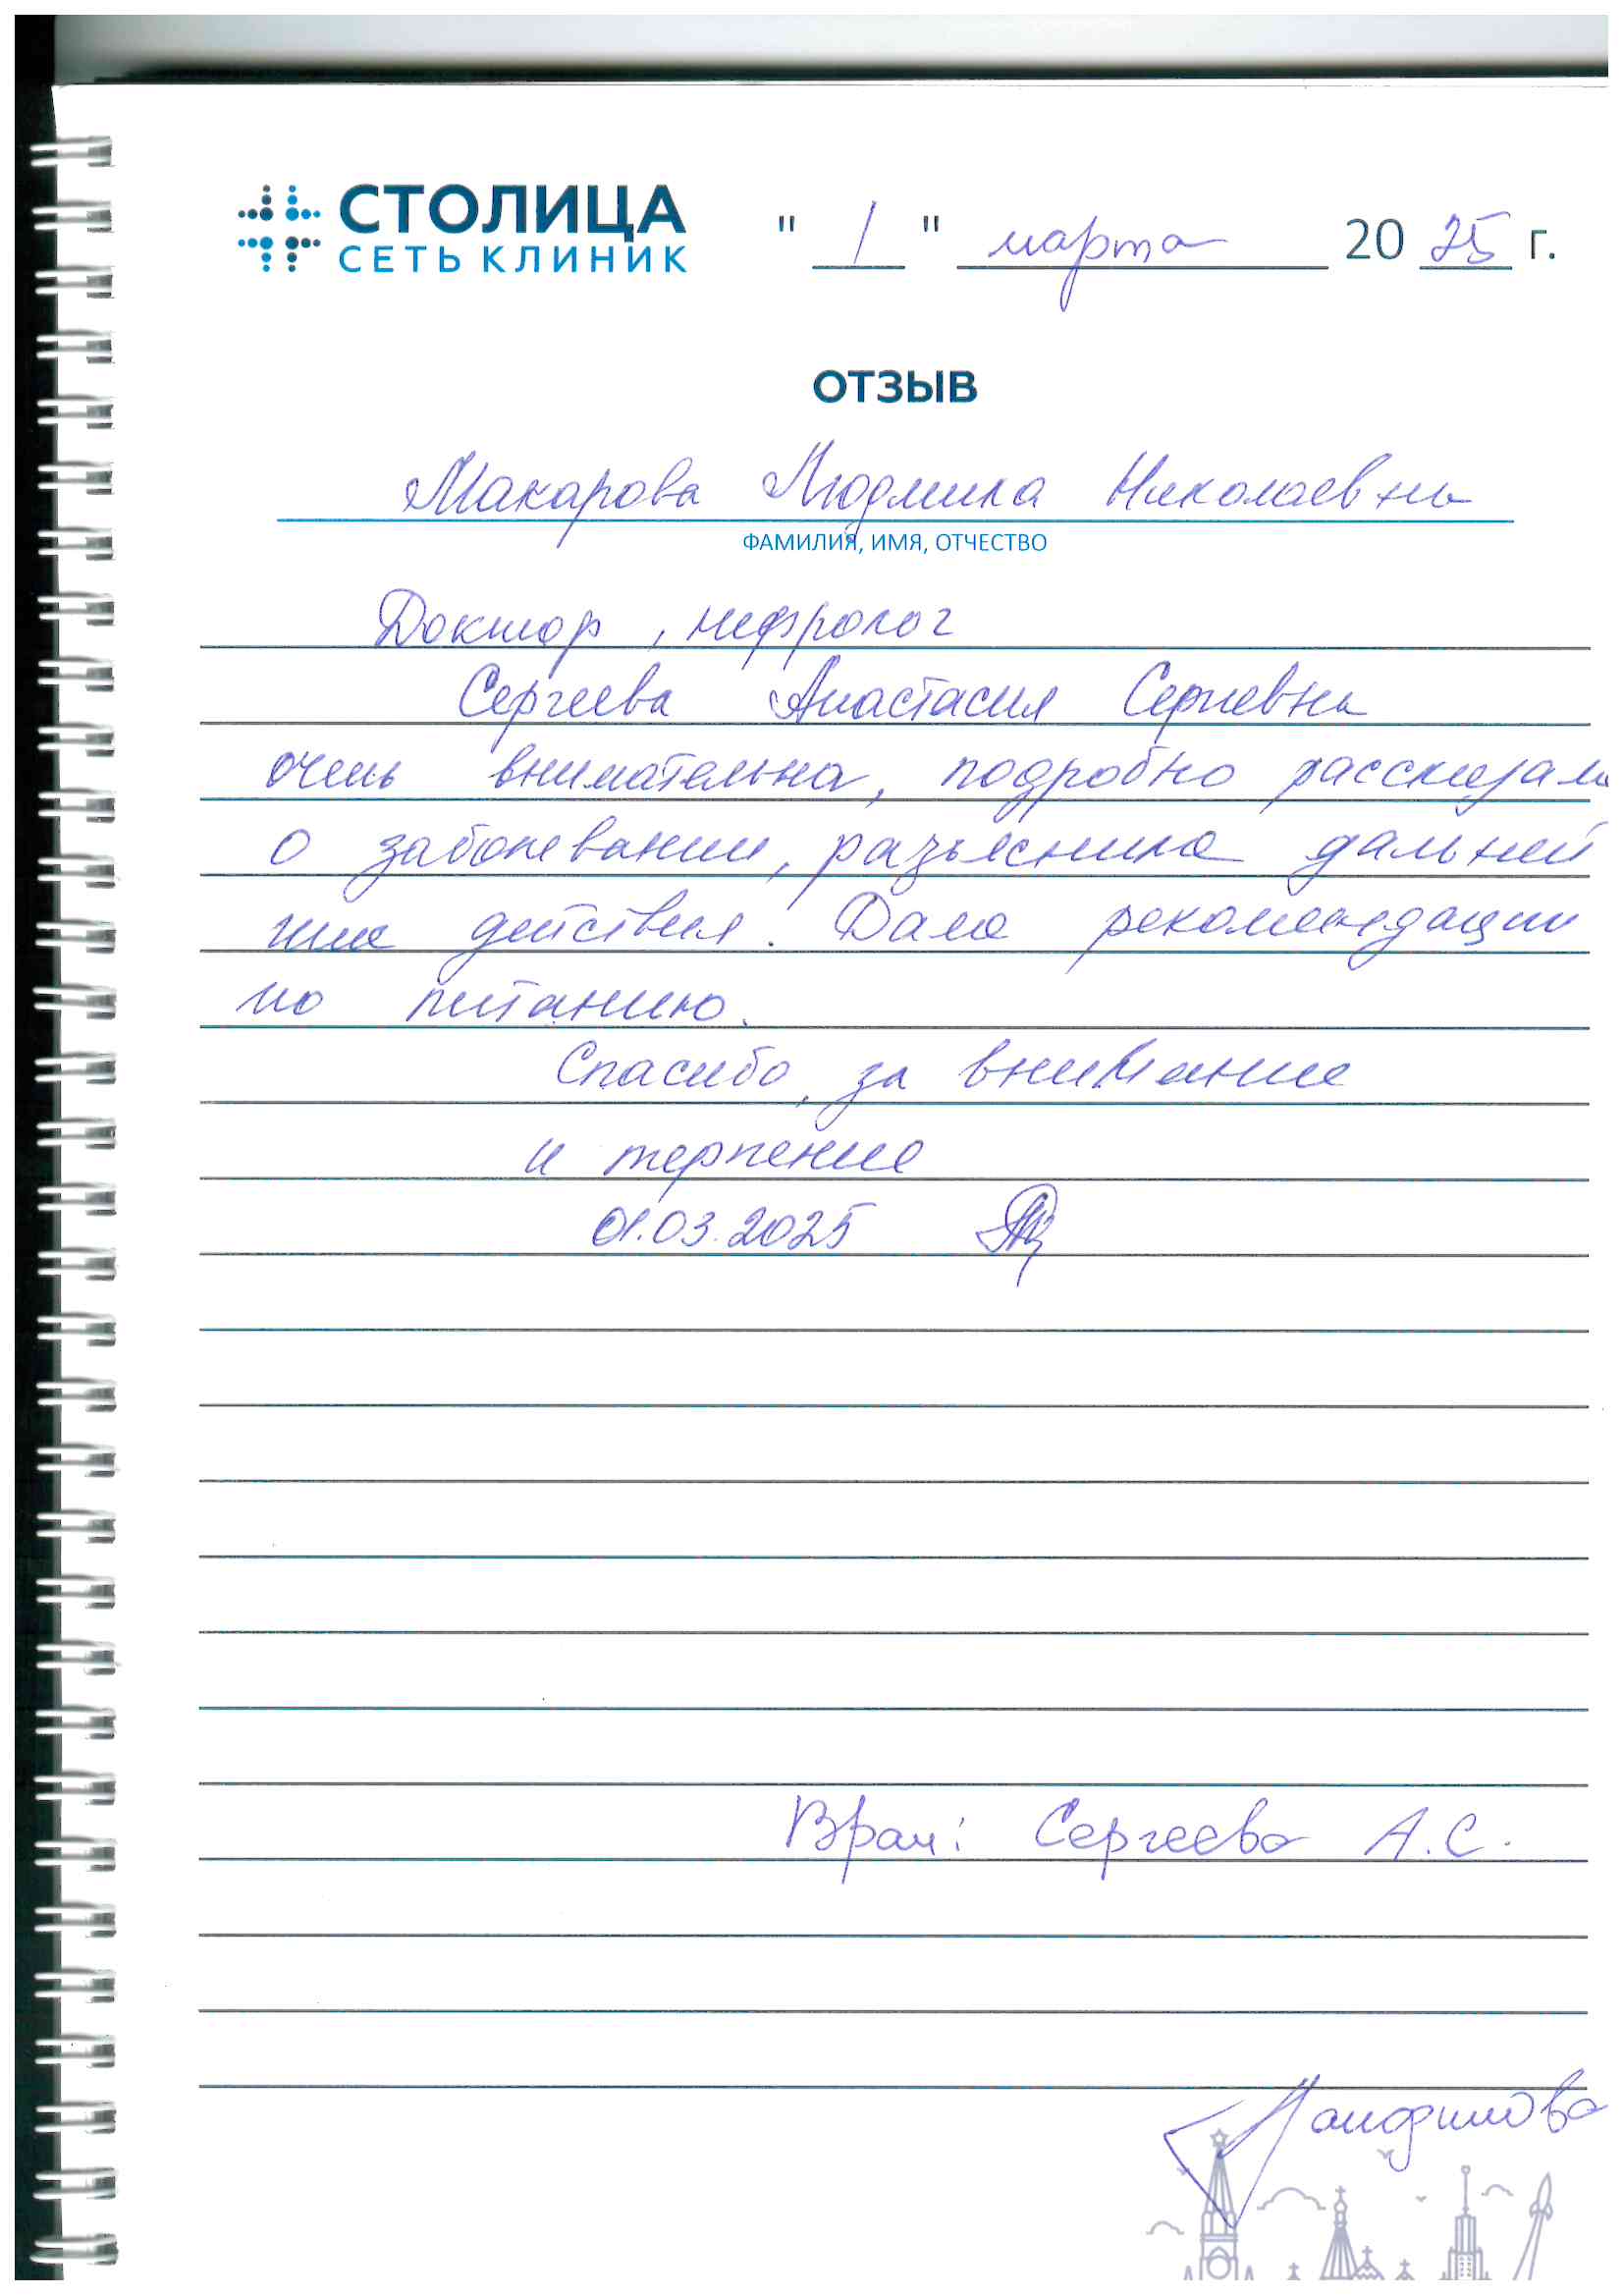 СТОЛИЦА
СЕТЬ КЛИНИК
" 1 " марта 20 25 г.
ОТЗЫВ
Макарова Людмила Николаевна
ФАМИЛИЯ, ИМЯ, ОТЧЕСТВО
Доктор, нефролог
Сергеева Анастасия Сергевна
очень внимательна, подробно рассказала
о заболевании, разъяснила дальней
шие действия. Дала рекомендации
по питанию.
Спасибо, за внимание
и терпение
01.03.2025
Врач: Сергеева А.С.